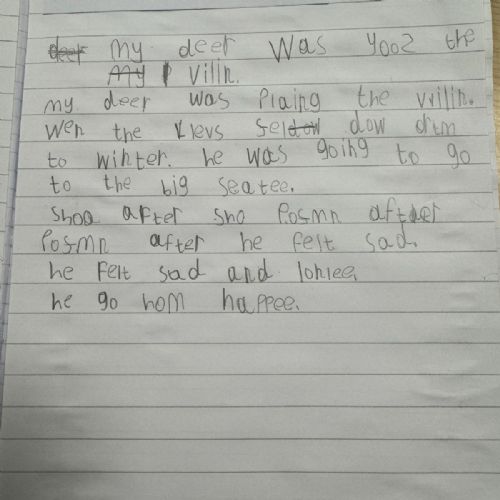 deer my deer was yooz the
my vilin.
my deer was Plaing the vvilin.
Wen the Llevs fel dow drm
to winter. he was going to go
to the big seatee.
shoo after sno Posmn after
Posmn after he felt sad.
he Felt sad and lonlee.
he go hom happee.